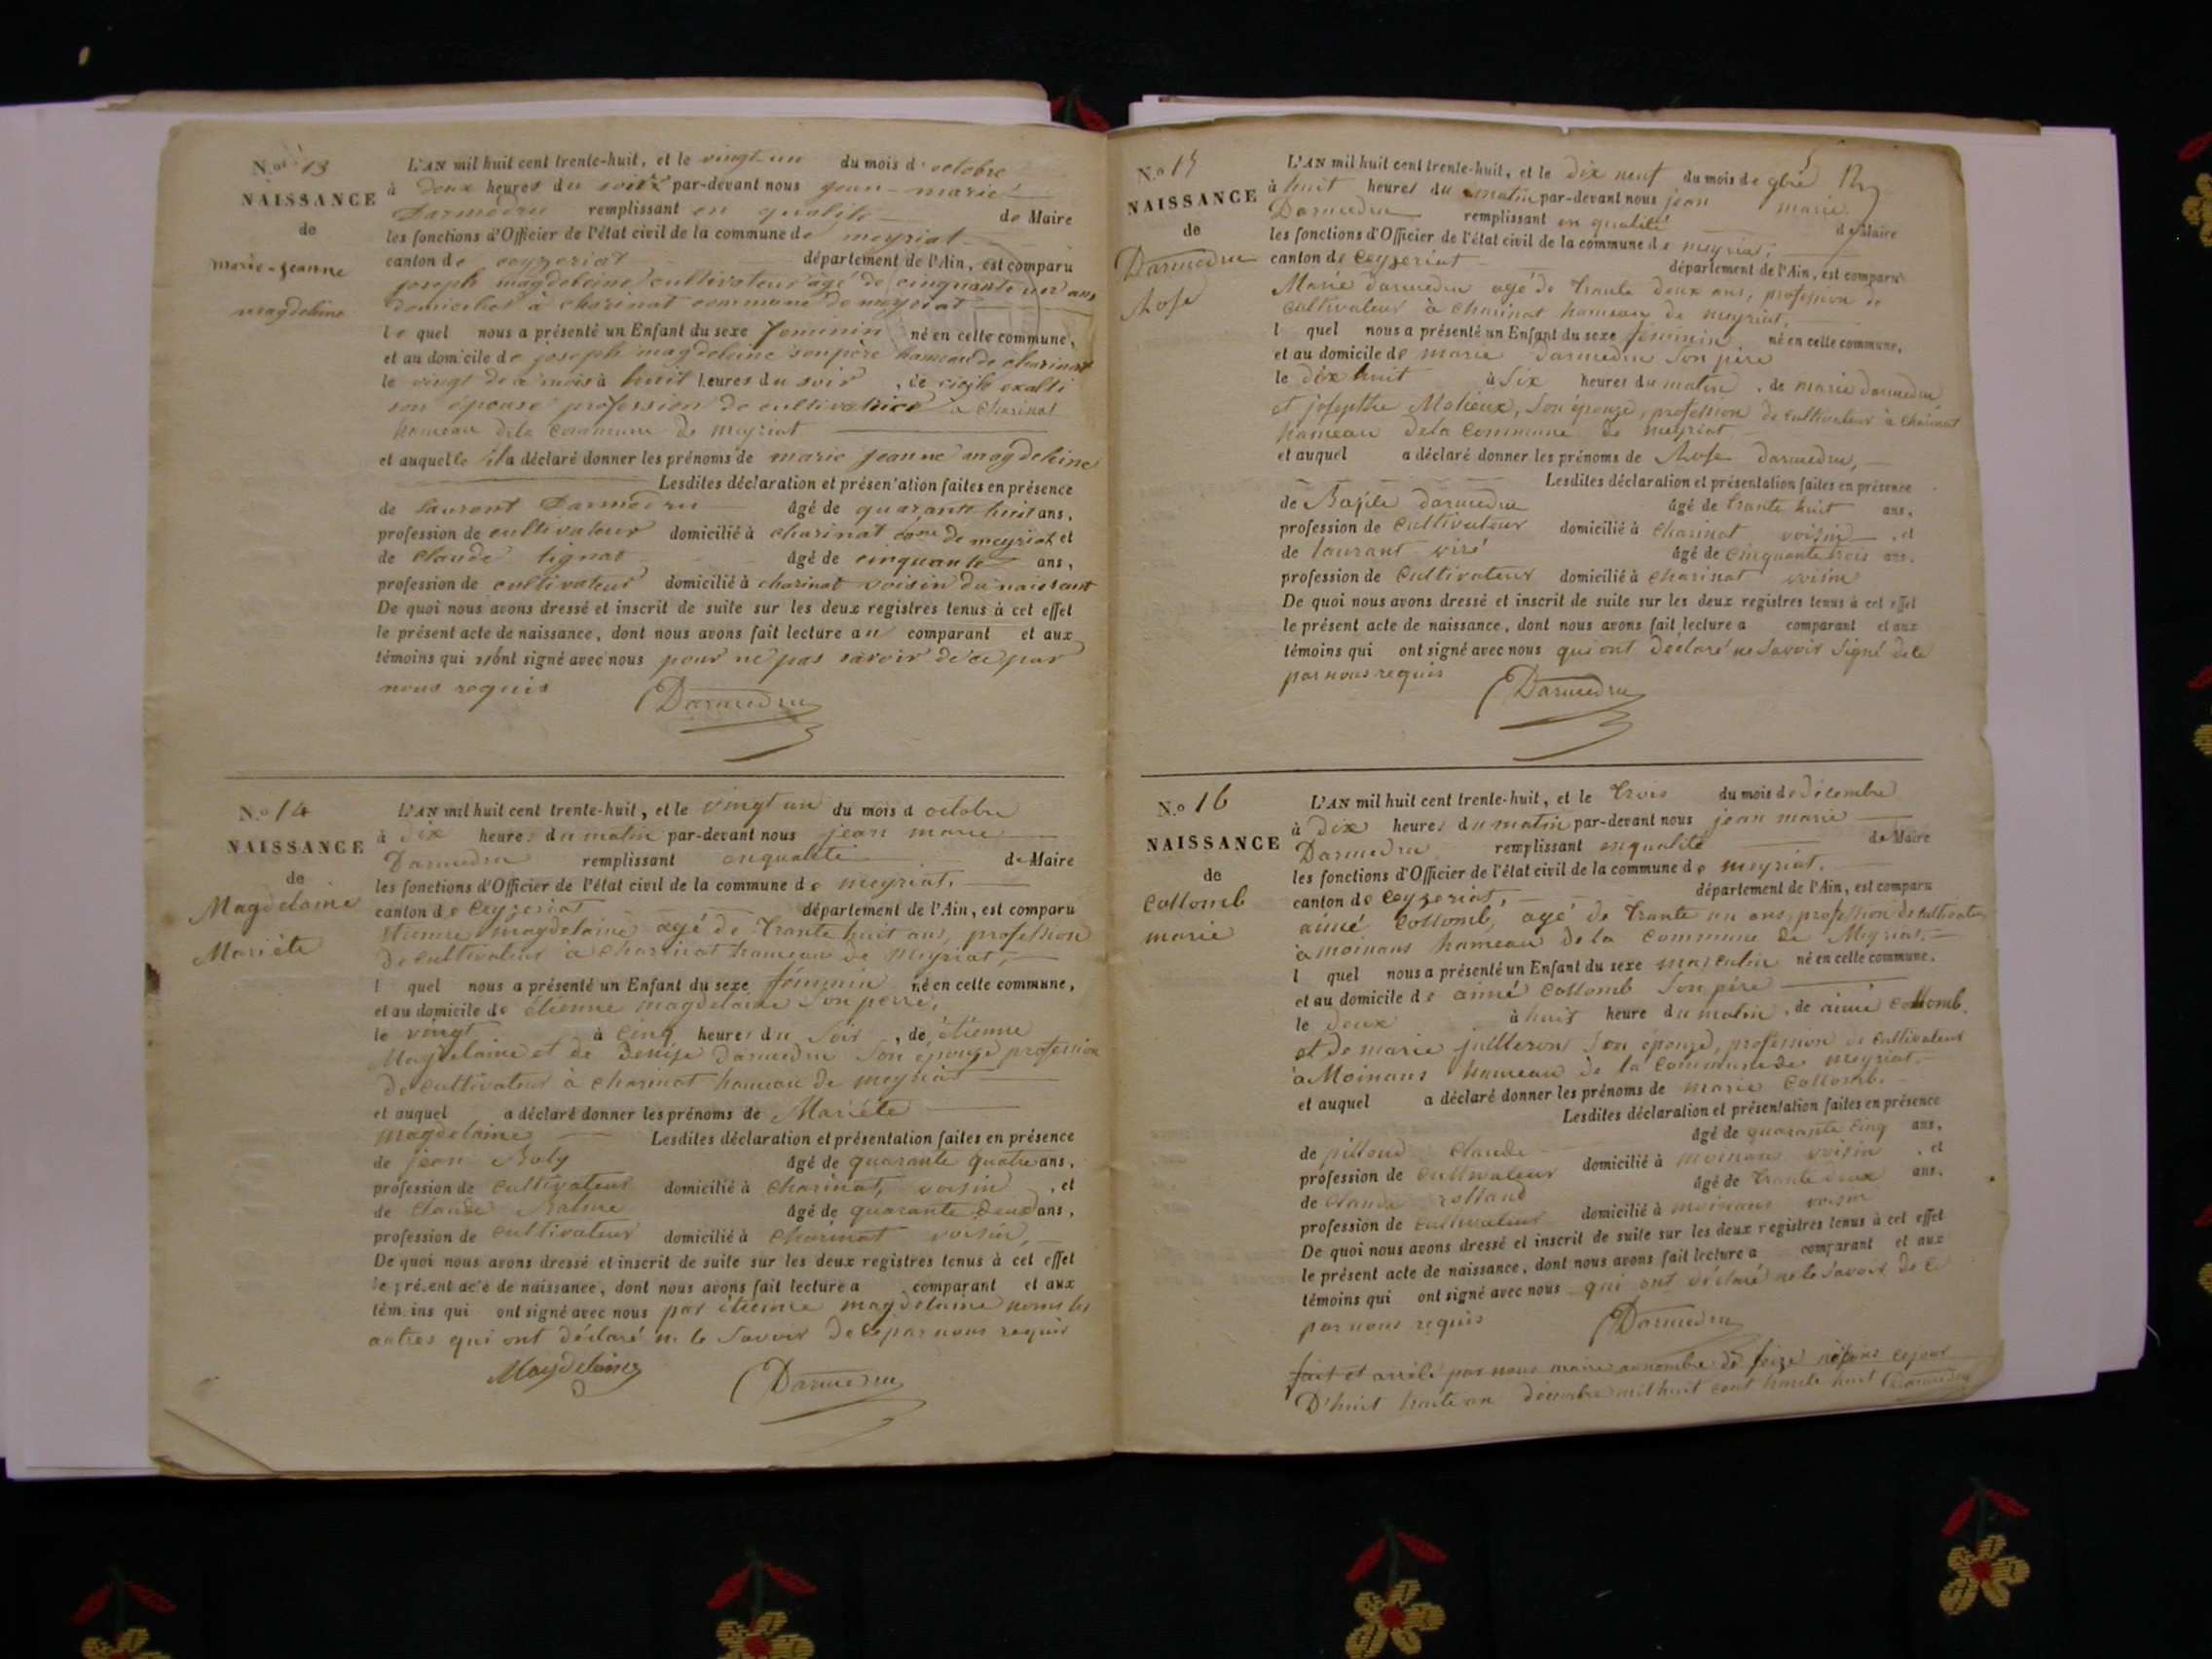 N.o 13
NAISSANCE
de
marie-jeanne
magdeleine
L'AN mil huit cent trente-huit, et le vingt-un du mois d'octobre
à deux heures du soir par-devant nous jean-marie
Darmedru remplissant en qualité de Maire
les fonctions d'Officier de l'état civil de la commune de meyriat
canton de ceyzeriat département de l'Ain, est comparu
joseph magdeleine cultivateur agé de cinquante un ans
domicilié à charinat commune de meyriat
le quel nous a présenté un Enfant du sexe feminin né en cette commune,
et au domicile de joseph magdeleine son père hameau de charinat
le vingt de ce mois à huit heures du soir, de
son épouse profession de cultivatrice a charinat
hameau dela commune de meyriat
et auquelle il a déclaré donner les prénoms de marie jeanne magdeleine
Lesdites déclaration et présentation faites en présence
de laurent Darmedru âgé de quarante huit ans,
profession de cultivateur domicilié à charinat co.ne de meyriat et
de claude tignat âgé de cinquante ans,
profession de cultivateur domicilié à charinat voisin du naissant
De quoi nous avons dressé et inscrit de suite sur les deux registres tenus à cet effet
le présent acte de naissance, dont nous avons fait lecture au comparant et aux
témoins qui n'ont signé avec nous pour ne pas savoir de ce par
nous requis
Darmedru
N.o 14
NAISSANCE
de
Magdelaine
Mariéte
L'AN mil huit cent trente-huit, et le vingt un du mois d octobre
à dix heures du matin par-devant nous jean marie
Darmedru remplissant enqualité de Maire
les fonctions d'Officier de l'état civil de la commune de meyriat,
canton de Ceyzeriat département de l'Ain, est comparu
Etienne magdelaine agé de trante huit ans, profession
de cultivateur à charinat hameau de meyriat,
l quel nous a présenté un Enfant du sexe féminin né en cette commune,
et au domicile de étienne magdelaine son perre,
le vingt à cinq heures du soir, de étienne
Magdelaine et de Denise darmedru son épouze profession
de cultivateur à charinat hameau de meyriat
et auquel a déclaré donner les prénoms de Mariéte
magdelaine Lesdites déclaration et présentation faites en présence
de jean Roly âgé de quarante quatre ans,
profession de cultivateur domicilié à charinat, voisin, et
de claude Balme âgé de quarante deux ans,
profession de cultivateur domicilié à charinat voisin,
De quoi nous avons dressé et inscrit de suite sur les deux registres tenus à cet effet
le présent acte de naissance, dont nous avons fait lecture a comparant et aux
témoins qui ont signé avec nous par étienne magdelaine nonis les
autres qui ont déclaré ne le savoir de ce par nous requis
Magdelaine
Darmedru
N.o 15
NAISSANCE
de
Darmedru
Rose
L'AN mil huit cent trente-huit, et le dix neuf du mois de 9bre
à huit heures du matin par-devant nous jean marie
Darmedru remplissant en qualité de Maire
les fonctions d'Officier de l'état civil de la commune de meyriat,
canton de Ceyzeriat département de l'Ain, est comparu
Marie darmedru agé de trante deux ans, profession de
cultivateur à charinat hameau de meyriat,
l quel nous a présenté un Enfant du sexe féminin né en cette commune,
et au domicile de marie darmedru son père
le dix huit à six heures du matin, de marie darmedru
et josepthe Molieux, son épouze, profession de cultivateur à charinat
hameau dela commune de meyriat
et auquel a déclaré donner les prénoms de Rose darmedru,
Lesdites déclaration et présentation faites en présence
de Bazile darmedru âgé de trante huit ans,
profession de cultivateur domicilié à charinat voisin, et
de laurant viré âgé de cinquante trois ans,
profession de cultivateur domicilié à charinat voisin
De quoi nous avons dressé et inscrit de suite sur les deux registres tenus à cet effet
le présent acte de naissance, dont nous avons fait lecture a comparant et aux
témoins qui ont signé avec nous qui ont déclaré ne savoir signé de ce
par nous requis
Darmedru
N.o 16
NAISSANCE
de
Collomb
marie
L'AN mil huit cent trente-huit, et le trois du mois de décembre
à dix heures du matin par-devant nous jean marie
Darmedru remplissant enqualité de Maire
les fonctions d'Officier de l'état civil de la commune de meyriat,
canton de Ceyzeriat, département de l'Ain, est comparu
aimé Collomb, agé de trante un ans, profession de cultivateur
à moinans hameau de la commune de Meyriat,
l quel nous a présenté un Enfant du sexe masculin né en cette commune,
et au domicile de aimé Collomb son père
le deux à huit heure du matin, de aimé Collomb,
et de marie juilleron son épouze, profession de cultivateur
à Moinans hameau de la commune de meyriat
et auquel a déclaré donner les prénoms de marie Collomb,
Lesdites déclaration et présentation faites en présence
de pilloud claude âgé de quarante cinq ans,
profession de cultivateur domicilié à moinans voisin, et
de claude rolland âgé de trante deux ans,
profession de cultivateur domicilié à moinans voisin
De quoi nous avons dressé et inscrit de suite sur les deux registres tenus à cet effet
le présent acte de naissance, dont nous avons fait lecture a comparant et aux
témoins qui ont signé avec nous qui ont déclaré ne le savoir de ce
par nous requis
Darmedru
fait et arrêlé par nous maire aunombre de seize cejour
D'huit trante un décembre mil huit cent trante huit Darmedru